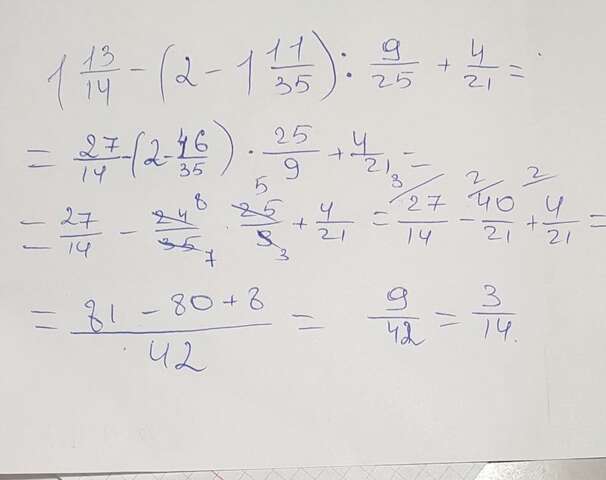 1 13/14 - (2 - 1 11/35) : 9/25 + 4/21 =
= 27/14 - (2 - 46/35) · 25/9 + 4/21 =
= 27/14 - 24 8/35 7 · 25 5/9 3 + 4/21 = 27 3/14 - 40 2/21 + 4 2/21 =
= 81 - 80 + 8/42 = 9/42 = 3/14.